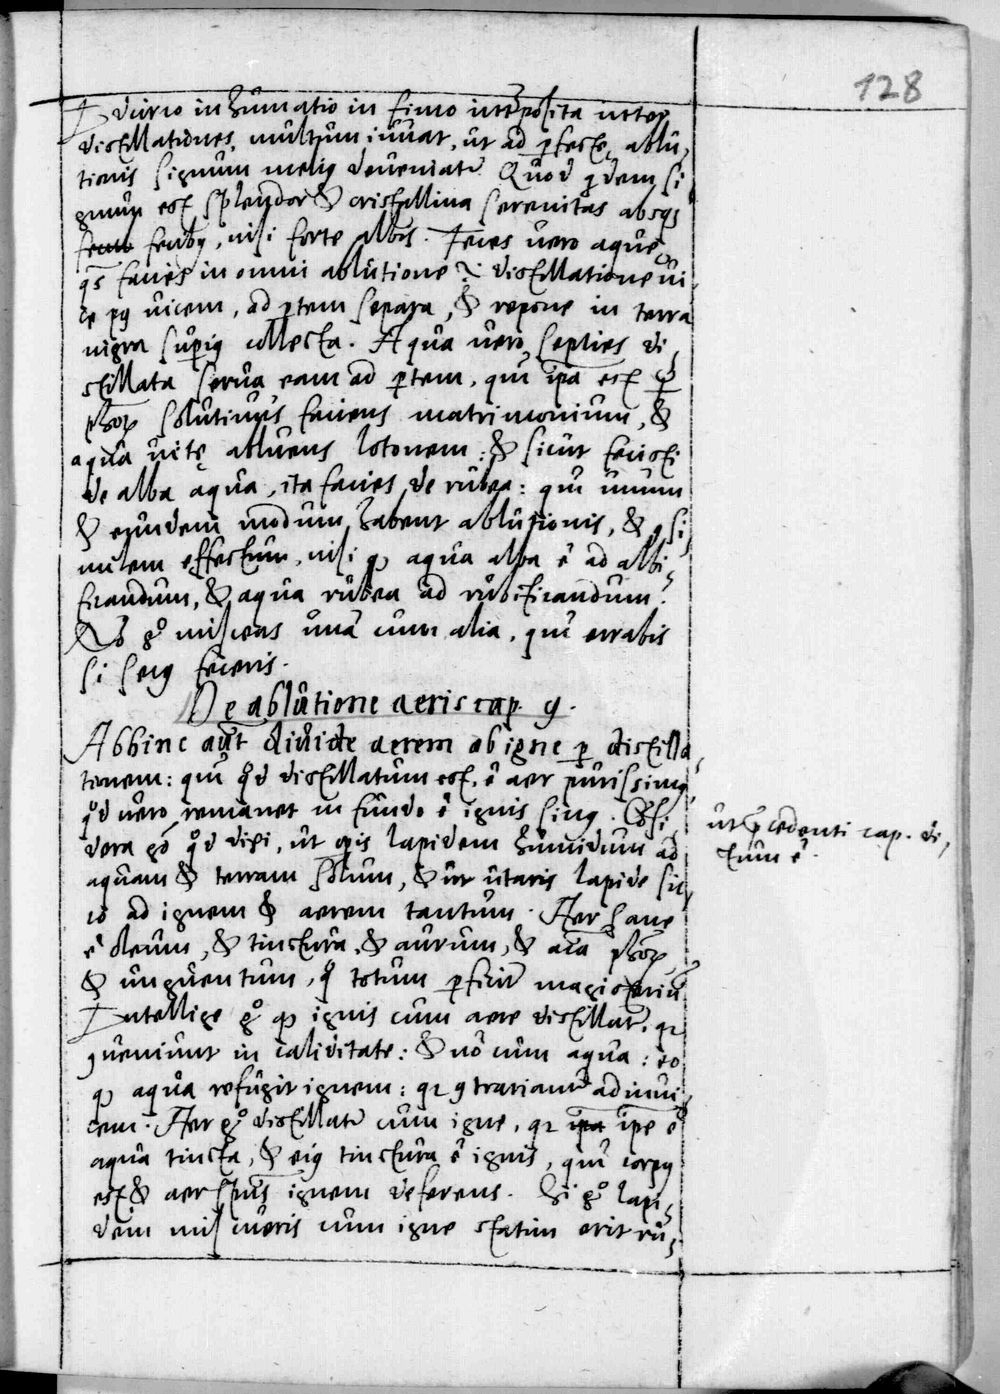 128
inhumatio in fimo interposita inter
distillationes, multum iuvat, ut ad perfectę ablu,
tionis signum melius deveniatur Quod quidem si
gnum est splendor & cristallina serenitas absque
fecibus, nisi forte albis. Feces vero aque
quas facies in omni ablutione & distillatione vi
ce post vicem, ad partem separa, & repone in terra
nigra superius collecta. Aqua vero septies di,
stillata serva eam ad partem, quia ipsa est
solutivus faciens matrimonium, &
aqua vitę abluens lotonem: & sicut fecisti
de alba aqua, ita facies de rubea: quia unum
& eundem modum habent ablutionis, & si
milem effectum, nisi quod aqua alba ē ad albi,
ficandum, & aqua rubea ad rubificandum.
Nō gͦ misceas unā cum alia, quia errabis
si secus feceris.
De ablutione aeris cap. 9.
Abhinc aūt divide aerem ab igne per distilla
tionem: quia qd distillatum est, ē aer purissimus
qd vero remanet in fundo ē ignis siccus. Cōsi,
dera gͦ qd dixi, ut lapidem humidum ad
aquam & terram solum, & ut utaris lapide sic,
co ad ignem & aerem tantum. Aer sane
ē oleum, & tinctura, & aurum, & aīa phōrum
& unguentum, quo totum perficitur magisteriū
Intellige gͦ quod ignis cum aere distillatur, quia
conveniunt in caliditate: & nō cum aqua: eo
quod aqua refugit ignem: quia contrariantur ad invi
cem. Aer gͦ distillatur cum igne, quia ipa ipe ē
aqua tincta, & eius tinctura ē ignis, quia corpus
est & aer spūs ignem deferens. Si gͦ lapi,
dem miscueris cum igne statim erit ru,
ut precedenti cap. di,
ctum ē.